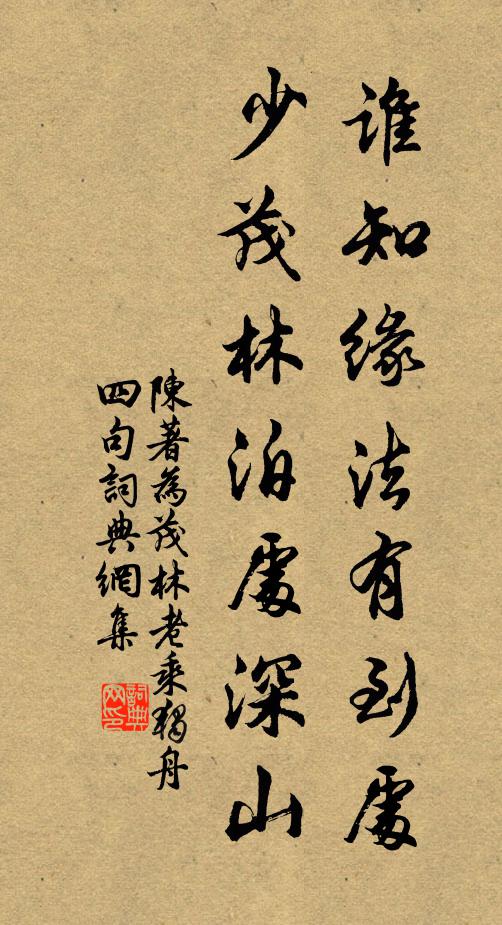 誰知緣法有到處
少茂林泊處深山
陳著為茂林老乘獨舟
四句詞典網集
詞典網印